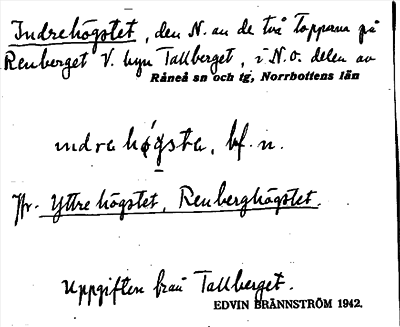 Indrehögstet, den N. av de två topparna på
Renberget V. byn Tallberget, i N.O. delen av
Råneå sn och tg, Norrbottens län
ındra högsta, bf. n.
Jfr. Yttrehögstet, Renberghögstet.
Uppgiften från Tallberget.
EDVIN BRÄNNSTRÖM 1942.